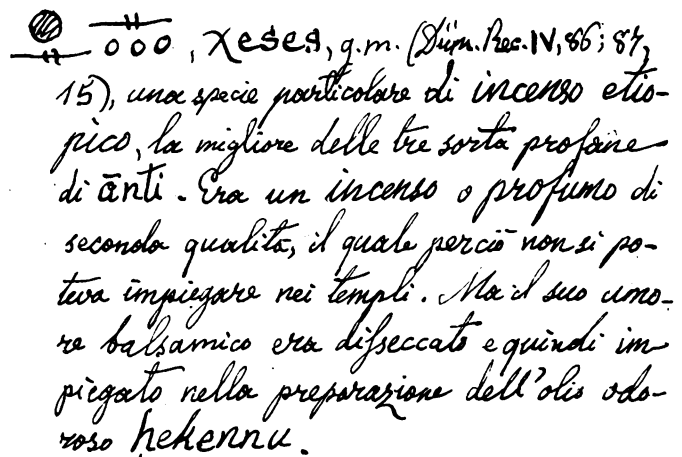 , χeses, g.m. (Düm. Rec. IV, 86; 87,
15), una specie particolare di incenso etio-
pico, la migliore delle tre sorta profane
di ānti. Era un incenso o profumo di
seconda qualità, il quale perciò non si po-
teva impiegare nei templi. Ma il suo umo-
re balsamico era disseccato e quindi im-
piegato nella preparazione dell'olio odo-
roso hekennu.